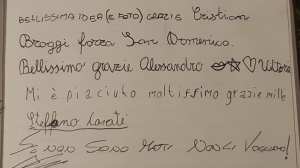 BELLISSIMA IDEA (E FOTO) GRAZIE Cristian
Broggi forza San Domenico.
Bellissimo grazie Alessandro ♡ Vittoria
Mi è piaciuto moltissimo grazie mille
Stefano
SONO NON CI